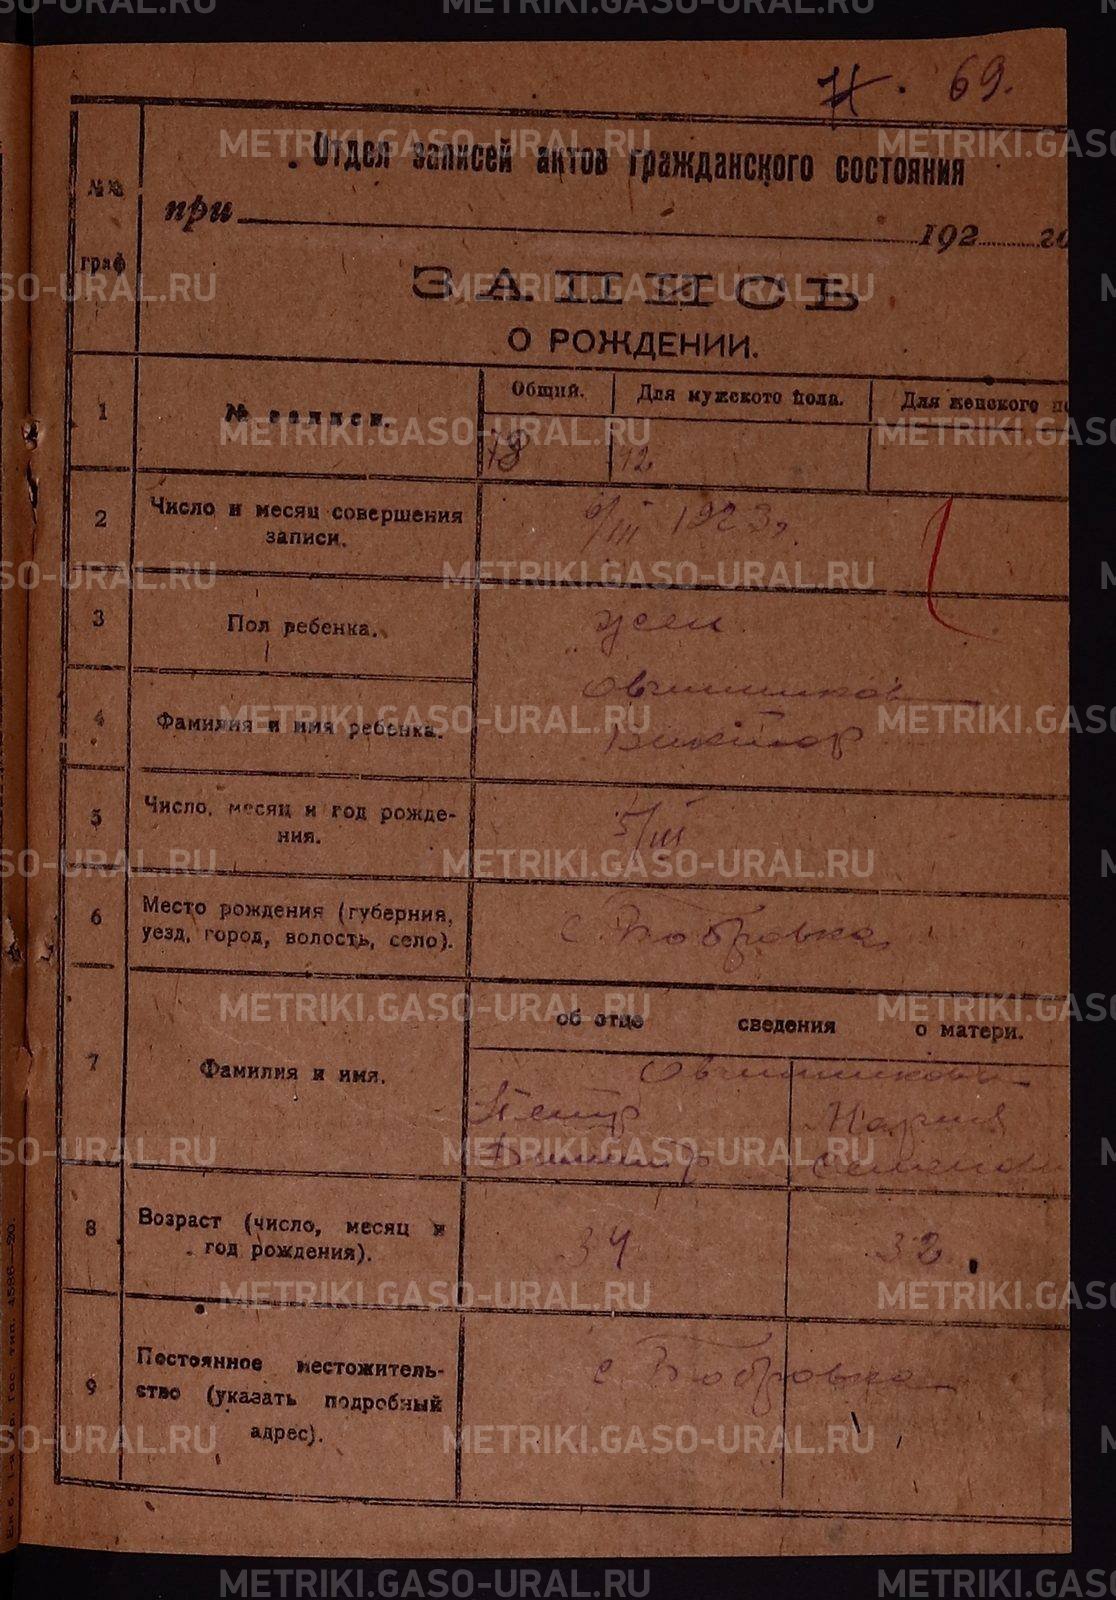 69.
Отдел записей актов гражданского состояния
№№ граф
при 192 го
ЗАПИСЬ
О РОЖДЕНИИ.
1 № записи. Общий. Для мужского пола. Для женского по
18 12
2 Число и месяц совершения записи. 6/III 1923 г.
3 Пол ребенка. жен
4 Фамилия и имя ребенка. Овчинников
Виктор
5 Число, месяц и год рожде-
ния. 5/III
6 Место рождения (губерния,
уезд, город, волость, село). с. Бобровка
7 Фамилия и имя. об отце сведения о матери.
Овчинниковы
Петр Мария
Димитр Семенов
8 Возраст (число, месяц и
год рождения). 34 32
9 Постоянное местожитель-
ство (указать подробный
адрес). с Бобровка
METRIKI.GASO-URAL.RU